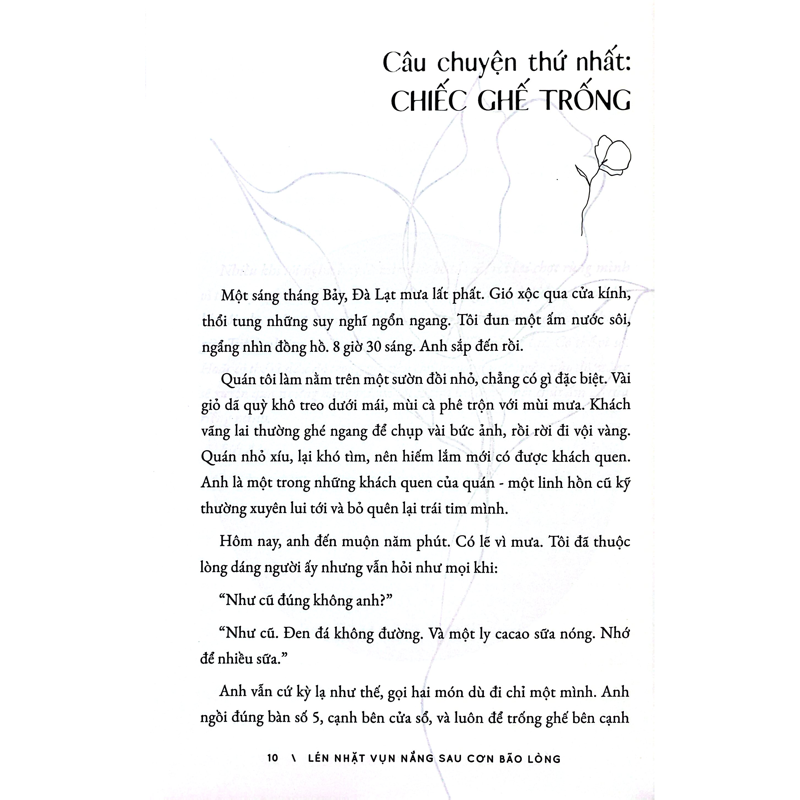 Câu chuyện thứ nhất:
CHIẾC GHẾ TRỐNG
Một sáng tháng Bảy, Đà Lạt mưa lất phất. Gió xộc qua cửa kính,
thổi tung những suy nghĩ ngổn ngang. Tôi đun một ấm nước sôi,
ngẩng nhìn đồng hồ. 8 giờ 30 sáng. Anh sắp đến rồi.
Quán tôi làm nằm trên một sườn đồi nhỏ, chẳng có gì đặc biệt. Vài
giỏ dã quỳ khô treo dưới mái, mùi cà phê trộn với mùi mưa. Khách
vãng lai thường ghé ngang để chụp vài bức ảnh, rồi rời đi vội vàng.
Quán nhỏ xíu, lại khó tìm, nên hiếm lắm mới có được khách quen.
Anh là một trong những khách quen của quán - một linh hồn cũ kỹ
thường xuyên lui tới và bỏ quên lại trái tim mình.
Hôm nay, anh đến muộn năm phút. Có lẽ vì mưa. Tôi đã thuộc
lòng dáng người ấy nhưng vẫn hỏi như mọi khi:
“Như cũ đúng không anh?”
“Như cũ. Đen đá không đường. Và một ly cacao sữa nóng. Nhớ
để nhiều sữa.”
Anh vẫn cứ kỳ lạ như thế, gọi hai món dù đi chỉ một mình. Anh
ngồi đúng bàn số 5, cạnh bên cửa sổ, và luôn để trống ghế bên cạnh
10 \ LÉN NHẶT VỤN NẮNG SAU CƠN BÃO LÒNG